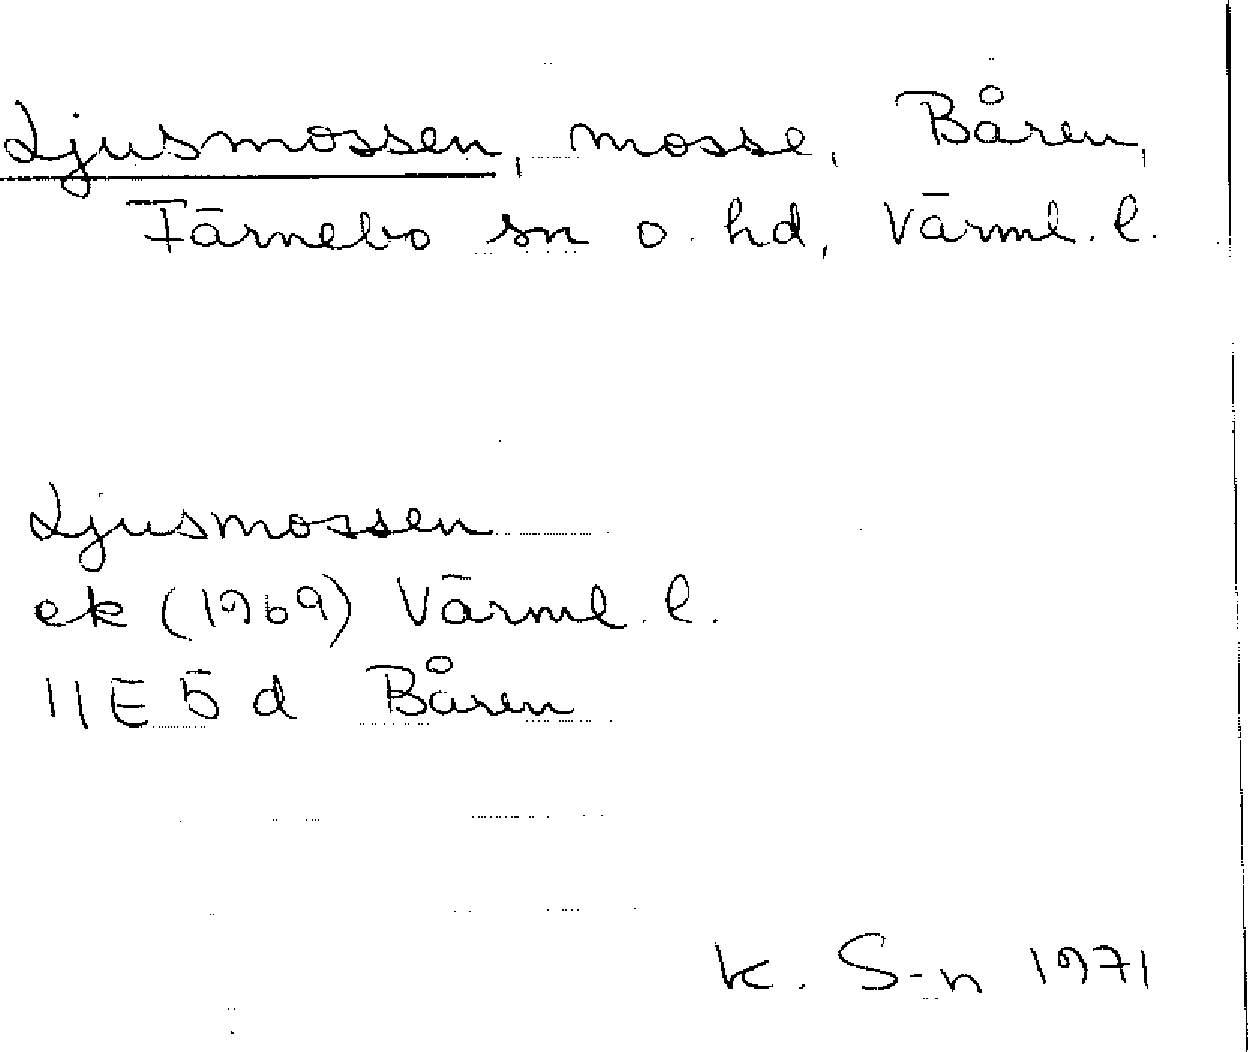 Ljusmossen, mosse, Båren,
Färnebo sn o. hd, Värml. l.
Ljusmossen
ek (1969) Värml. l.
11E 5 d Båren
K. S-n 1971